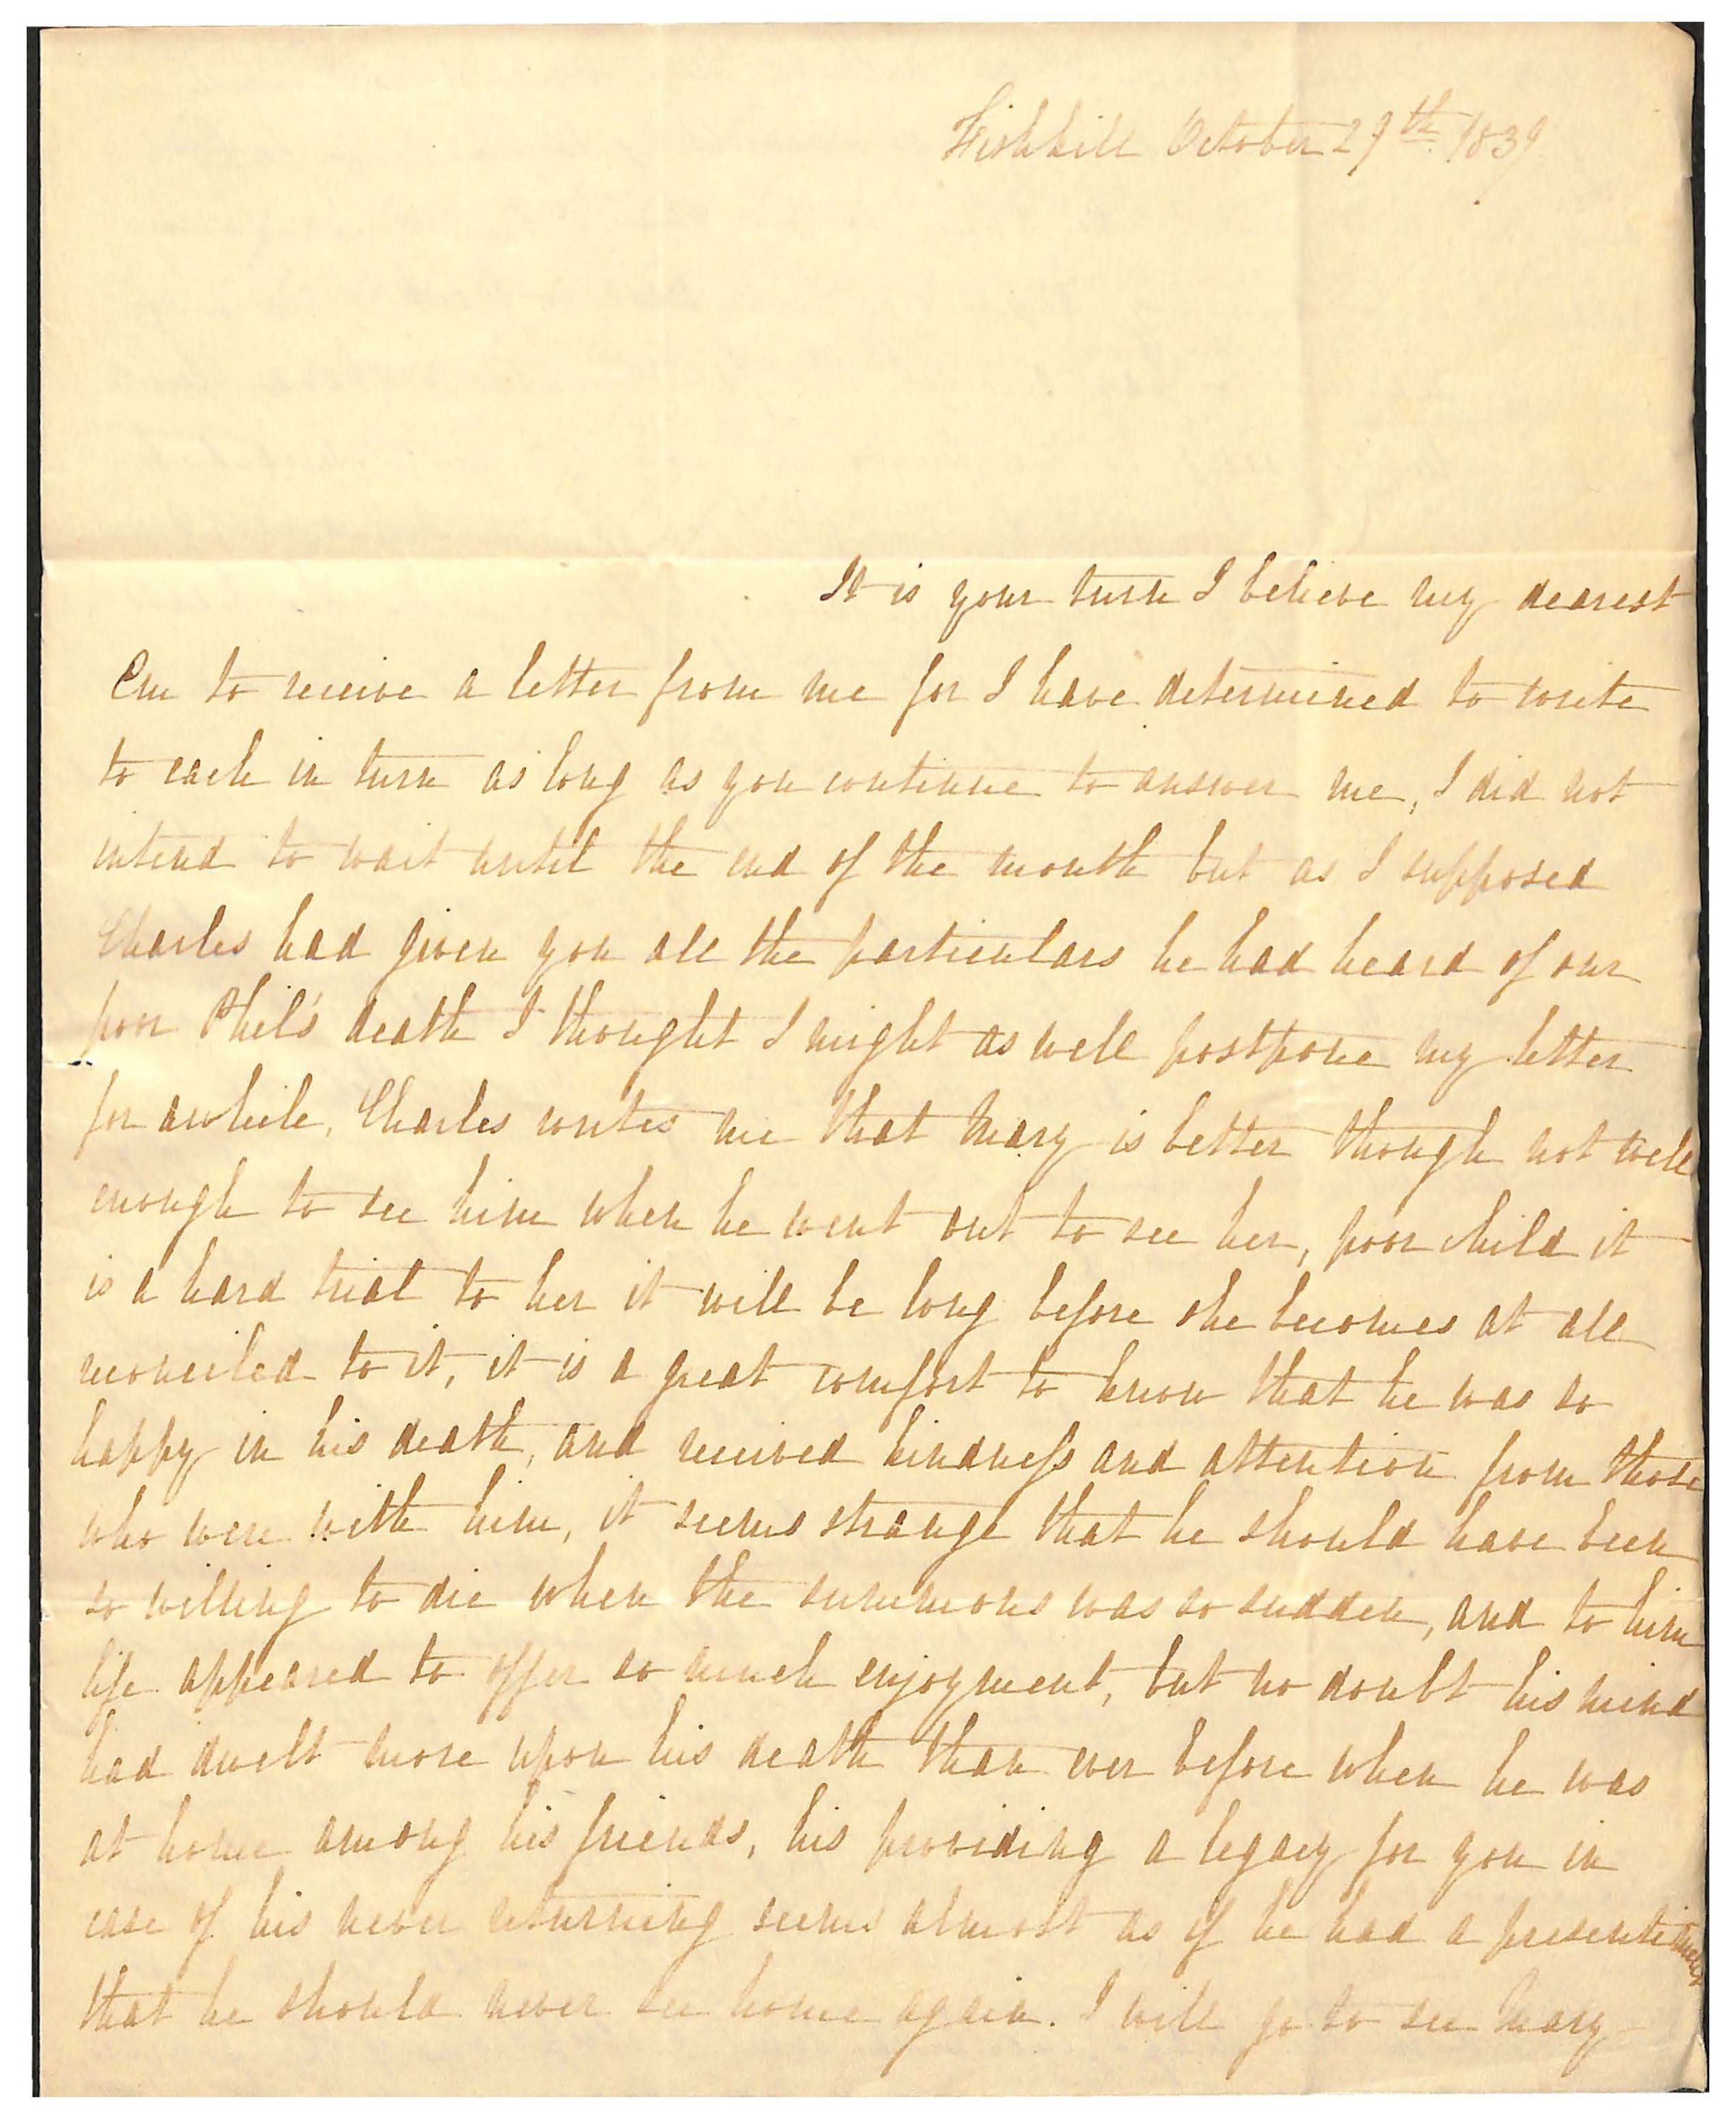 Fishkill October 29th 1839
It is your turn I believe my dearest
Em to receive a letter from me for I have determined to write
to each in turn as long as you continue to answer me, I did not
intend to wait until the end of the month but as I supposed
Charles had given you all the particulars he had heard of our
poor Phil's death I thought I might as well postpone my letter
for awhile, Charles writes me that Mary is better though not well
enough to see him when he went out to see her, poor child it
is a hard trial to her it will be long before she becomes at all
reconciled to it, it is a great comfort to know that he was so
happy in his death, and received kindness and attention from those
who were with him, it seems strange that he should have been
so willing to die when the summons was so sudden, and to him
life appeared to offer so much enjoyment, but no doubt his mind
had dwelt more upon his death than ever before when he was
at home among his friends, his providing a legacy for you in
case of his never returning seems almost as if he had a presentiment
that he should never see home again. I will go to see Mary